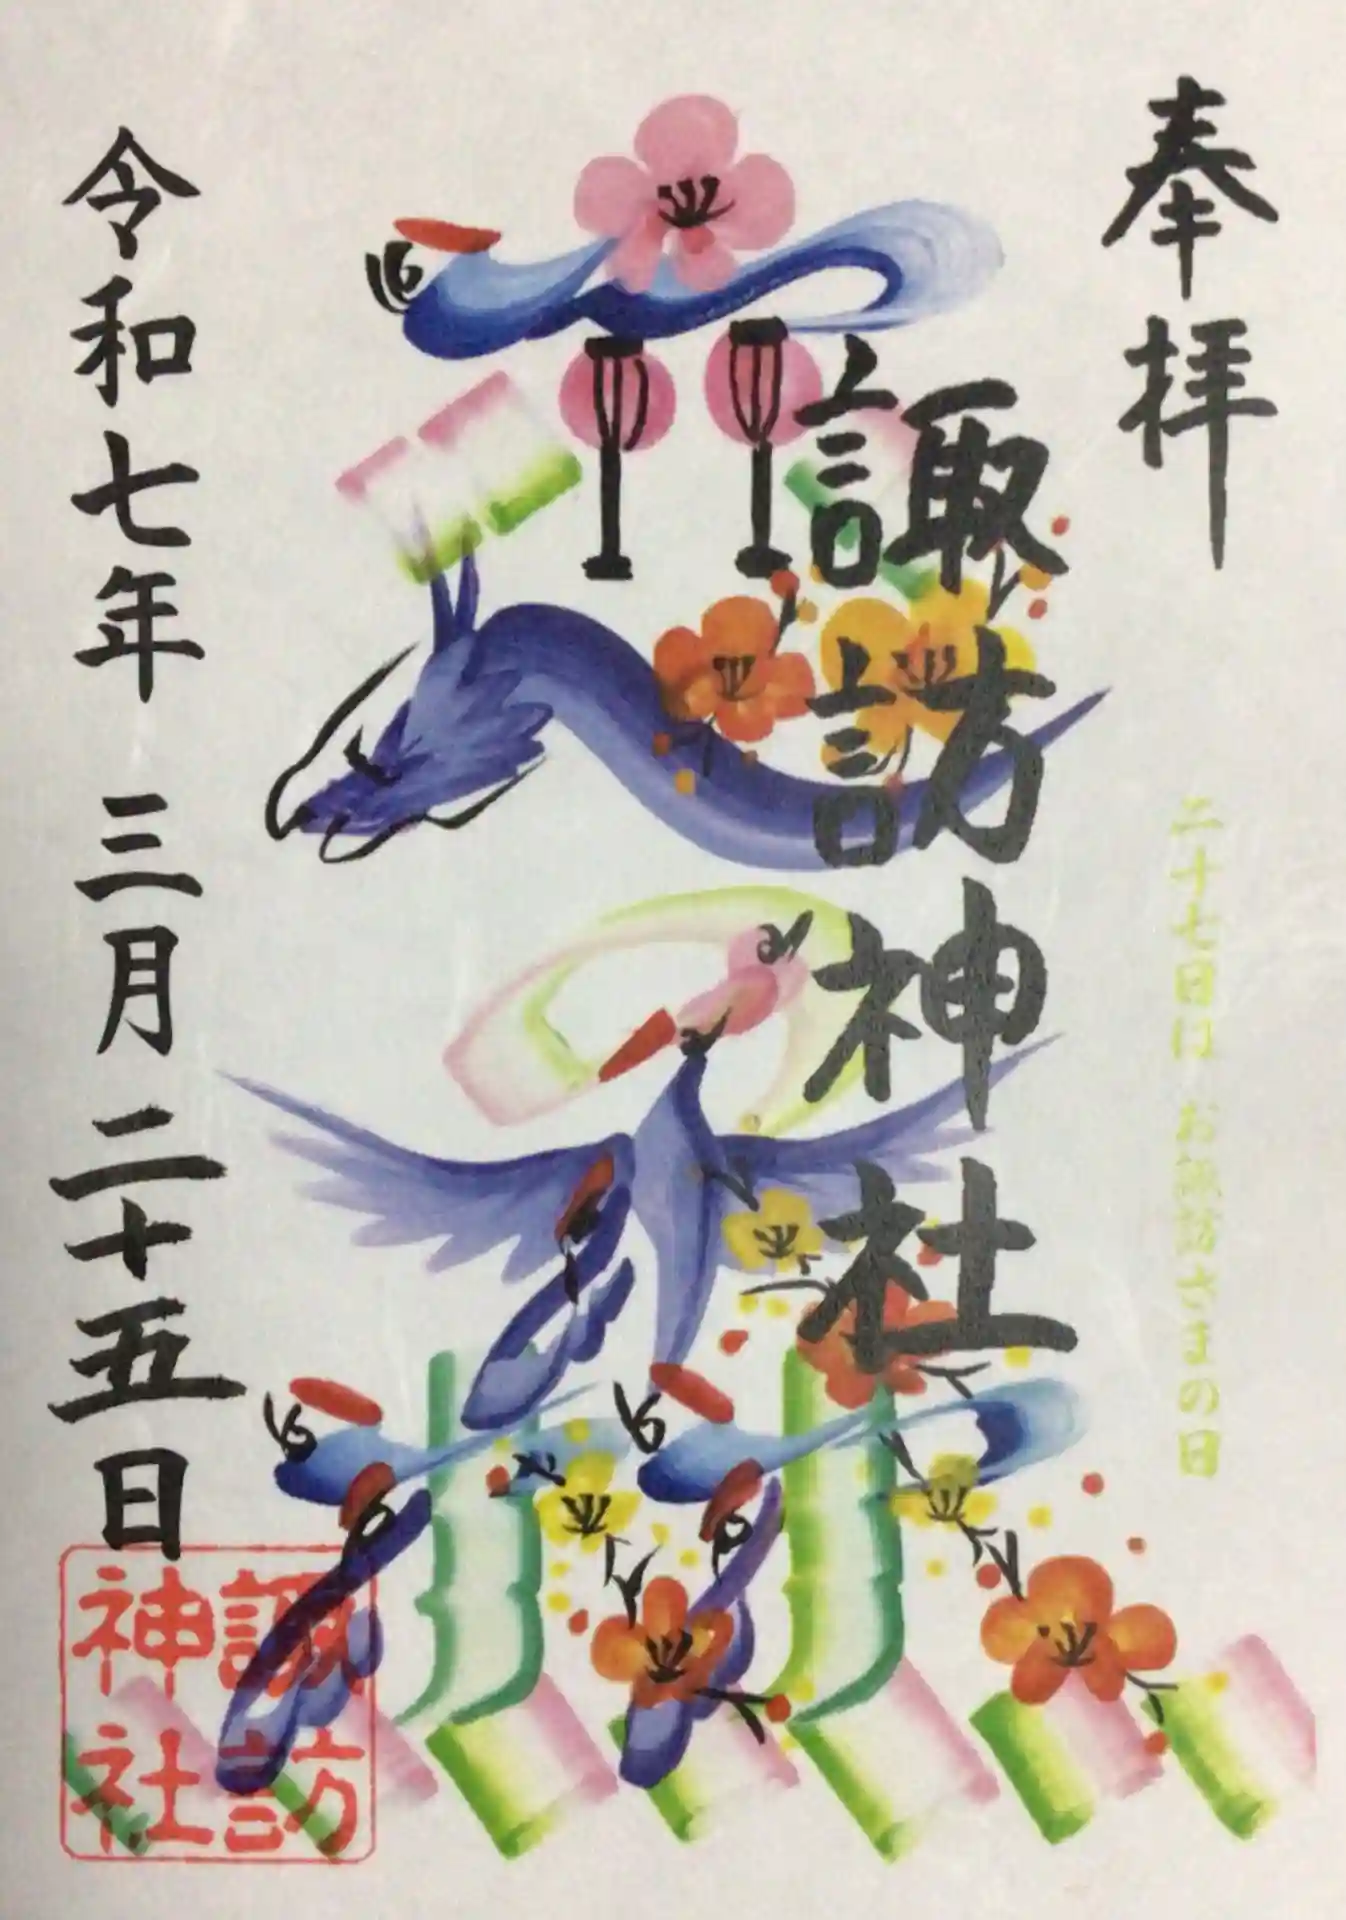 奉拝
二十七日はお諏訪さまの日
諏訪神社
令和七年 三月 二十五日
諏訪
神社